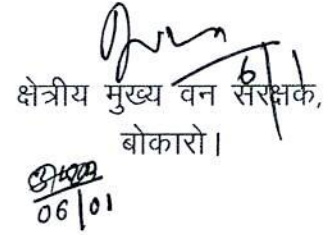 6/1
क्षेत्रीय मुख्य वन संरक्षक,
बोकारो।
06/01